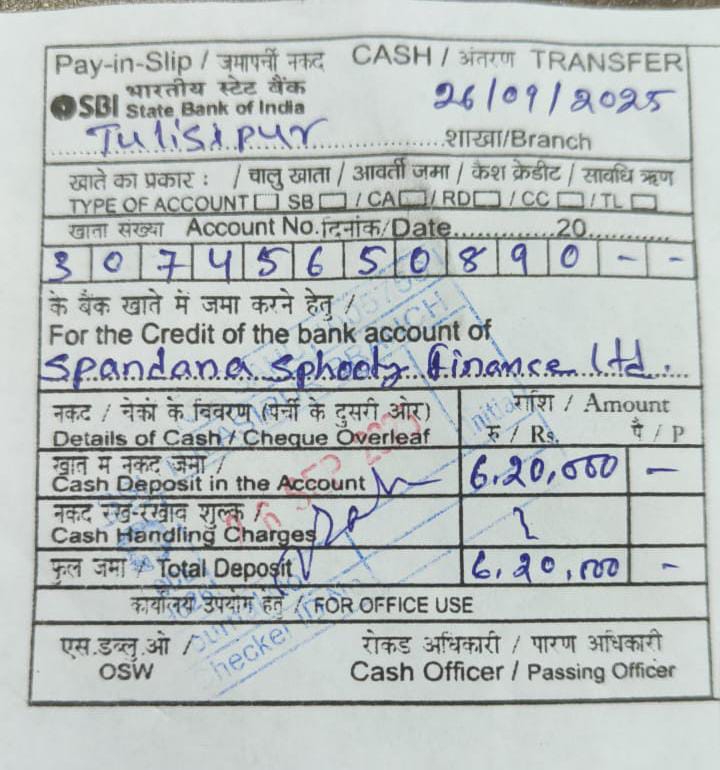 Pay-in-Slip / जमापर्ची नकद CASH / अंतरण TRANSFER
भारतीय स्टेट बैंक
SBI State Bank of India
26/09/2025
Tulisipur शाखा/Branch
खाते का प्रकार : / चालु खाता / आवर्ती जमा / कैश क्रेडीट / सावधि ऋण
TYPE OF ACCOUNT SB / CA / RD / CC / TL
खाता संख्या Account No. दिनांक/Date 20
3 0 7 4 5 6 5 0 8 9 0 - -
के बैंक खाते में जमा करने हेतु /
For the Credit of the bank account of
Spandana Sphooty Finance Ltd.
नकद / चेकों के विवरण (पर्ची के दुसरी ओर) राशि / Amount
Details of Cash / Cheque Overleaf रु / Rs. पै / P
खाते में नकद जमा /
Cash Deposit in the Account 6,20,000 -
नकद रख-रखाव शुल्क /
Cash Handling Charges
कुल जमा / Total Deposit 6,20,000 -
कार्यालय उपयोग हेतु / FOR OFFICE USE
एस.डब्लु.ओ / रोकड अधिकारी / पारण अधिकारी
OSW Cash Officer / Passing Officer